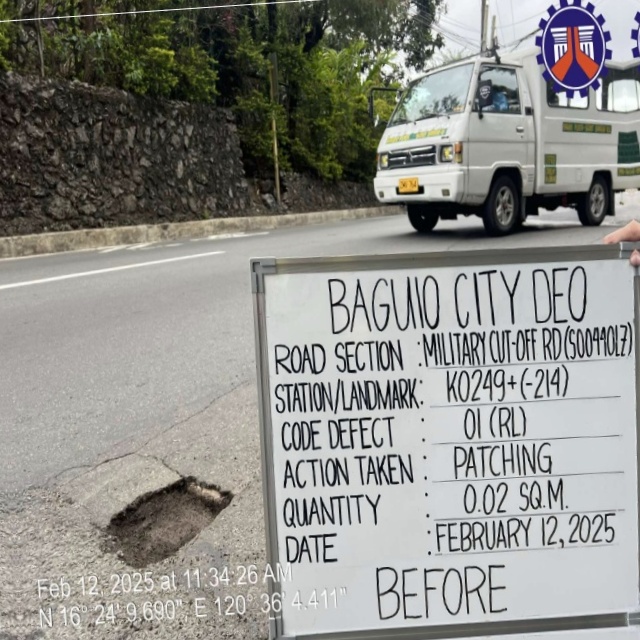 BAGUIO CITY DEO
ROAD SECTION : MILITARY CUT-OFF RD (S00449LZ)
STATION/LANDMARK: K0249+(-214)
CODE DEFECT : 01 (RL)
ACTION TAKEN : PATCHING
QUANTITY : 0.02 SQ.M.
DATE : FEBRUARY 12, 2025
BEFORE
Feb 12, 2025 at 11:34:26 AM
N 16° 24' 9.690", E 120° 36' 4.411"